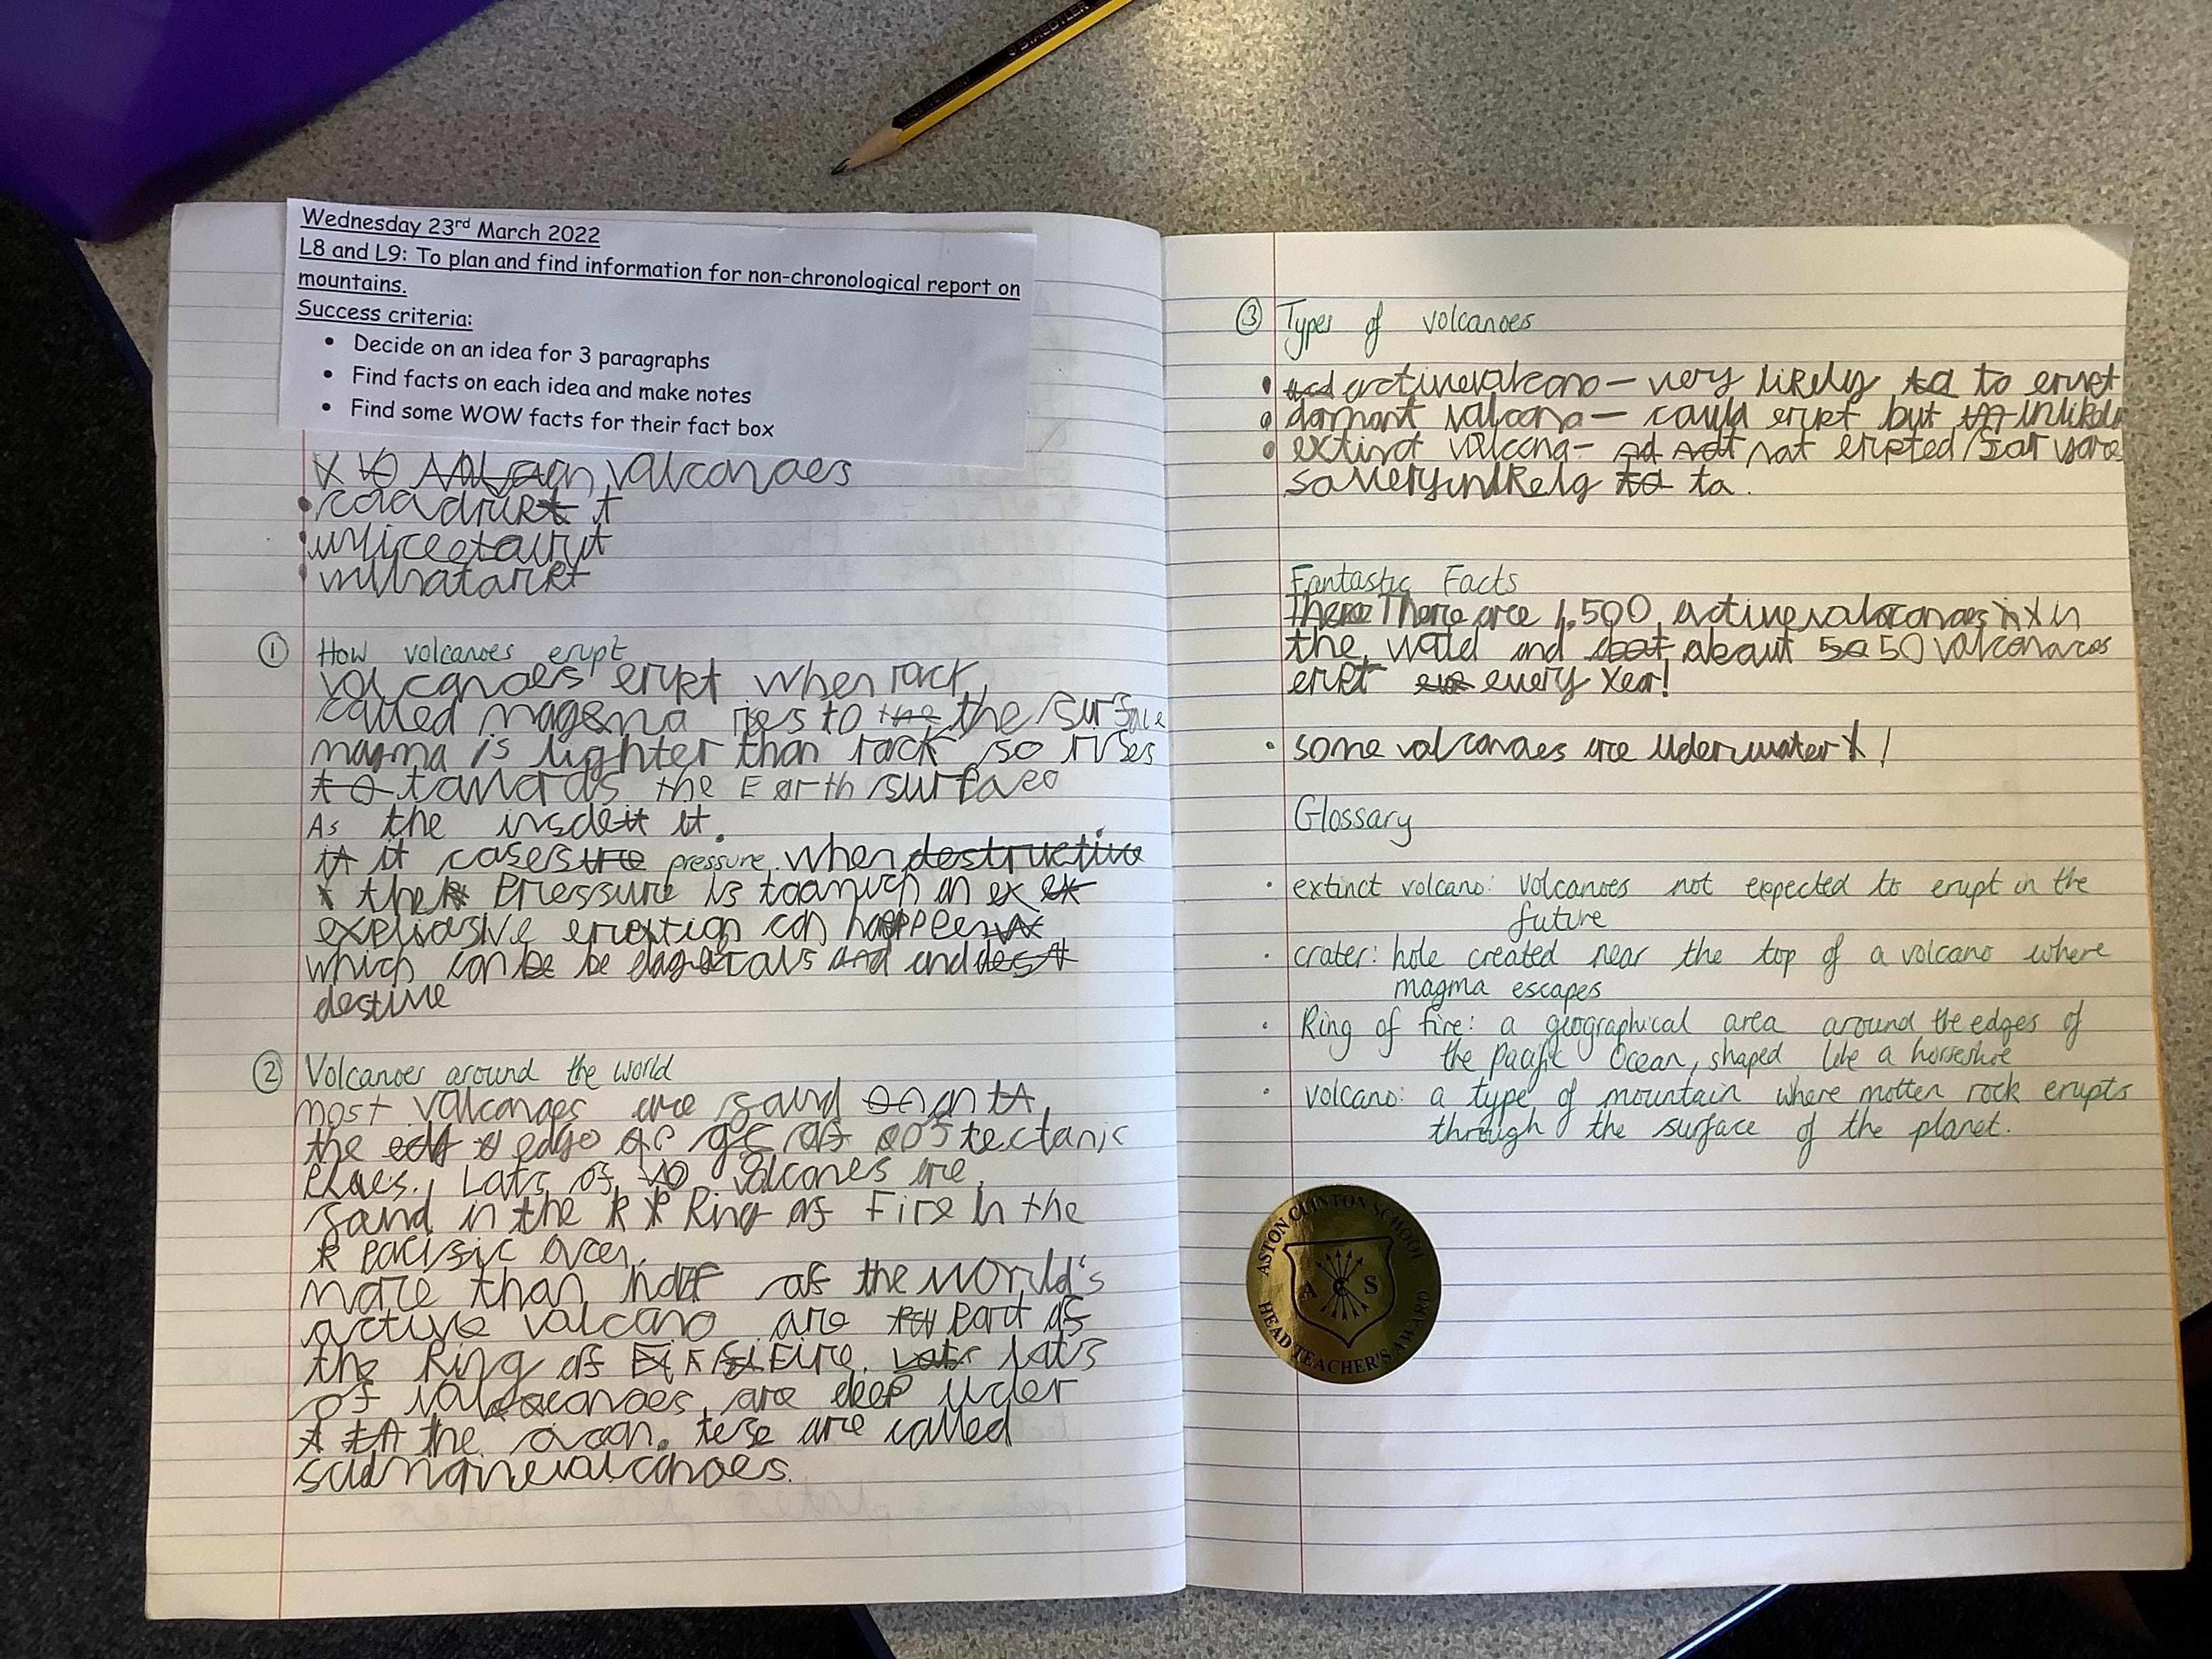 STAEDTLER
Wednesday 23rd March 2022
L8 and L9: To plan and find information for non-chronological report on
mountains.
Success criteria:
• Decide on an idea for 3 paragraphs
• Find facts on each idea and make notes
• Find some WOW facts for their fact box
valcanaes
① How volcanoes erupt
valcanoes erupt when rack
called magma ries to the the surface
magma is lighter than rack so rises
to tawards the Earth surface
As the it.
it cases pressure. when destructive
the Pressure is toomuch an ex ex
explasive eruption can happen
which can be be and and
② Volcanoes around the world
most valcanoes are on
the edge of tectanic
Lats of valcanes are
in the Ring of Fire in the
Pacific
more than half of the world's
active valcano are Part of
the Ring of Fire. Lots lats
of valcanoes are deep uder
the tese are called
③ Types of volcanoes
• activevalcano - very likely to to erupt
• dormant valcano - could erupt but
• extinct valcano - not erupted for
ta.
Fantastic Facts
There There are 1,500 activevalcanoes in
the world and about about 50 50
every year!
• some valcanoes are uderwater !
Glossary
• extinct volcano: volcanoes not expected to erupt in the
future
• crater: hole created near the top of a volcano where
magma escapes
• Ring of fire: a geographical area around the edges of
the pacific Ocean, shaped like a horseshoe
• volcano: a type of mountain where molten rock erupts
through the surface of the planet.
ASTON CLINTON SCHOOL
A C S
HEAD TEACHER'S AWARD